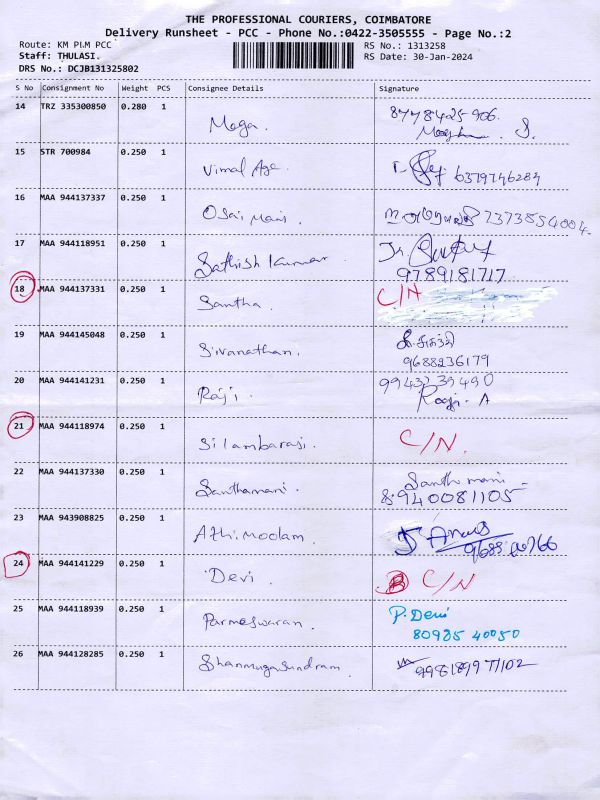 THE PROFESSIONAL COURIERS, COIMBATORE
Delivery Runsheet - PCC - Phone No.:0422-3505555 - Page No.:2
Route: KM PLM PCC
RS No.: 1313258
Staff: THULASI.
RS Date: 30-Jan-2024
DRS No.: DCJB131325802
S No Consignment No Weight PCS Consignee Details Signature
14 TRZ 335300850 0.280 1 Mega. 8778425906
15 STR 700984 0.250 1 Vimal 6379746284
16 MAA 944137337 0.250 1 Osai Mani. 7373854004.
17 MAA 944118951 0.250 1 Sathish Kumar
9789181717
18 MAA 944137331 0.250 1 Santha. C/N
19 MAA 944145048 0.250 1 Sivanathan.
9688236179
20 MAA 944141231 0.250 1 Raji. 9943239490
Raaji. A
21 MAA 944118974 0.250 1 Silambarasi. C/N.
22 MAA 944137330 0.250 1 Santhamani. Santhamani
940081105
23 MAA 943908825 0.250 1 Athimoolam.
24 MAA 944141229 0.250 1 Devi. C/N
25 MAA 944118939 0.250 1 Parmeswaran. P. Devi
80985 40050
26 MAA 944128285 0.250 1 Shanmugasundram.